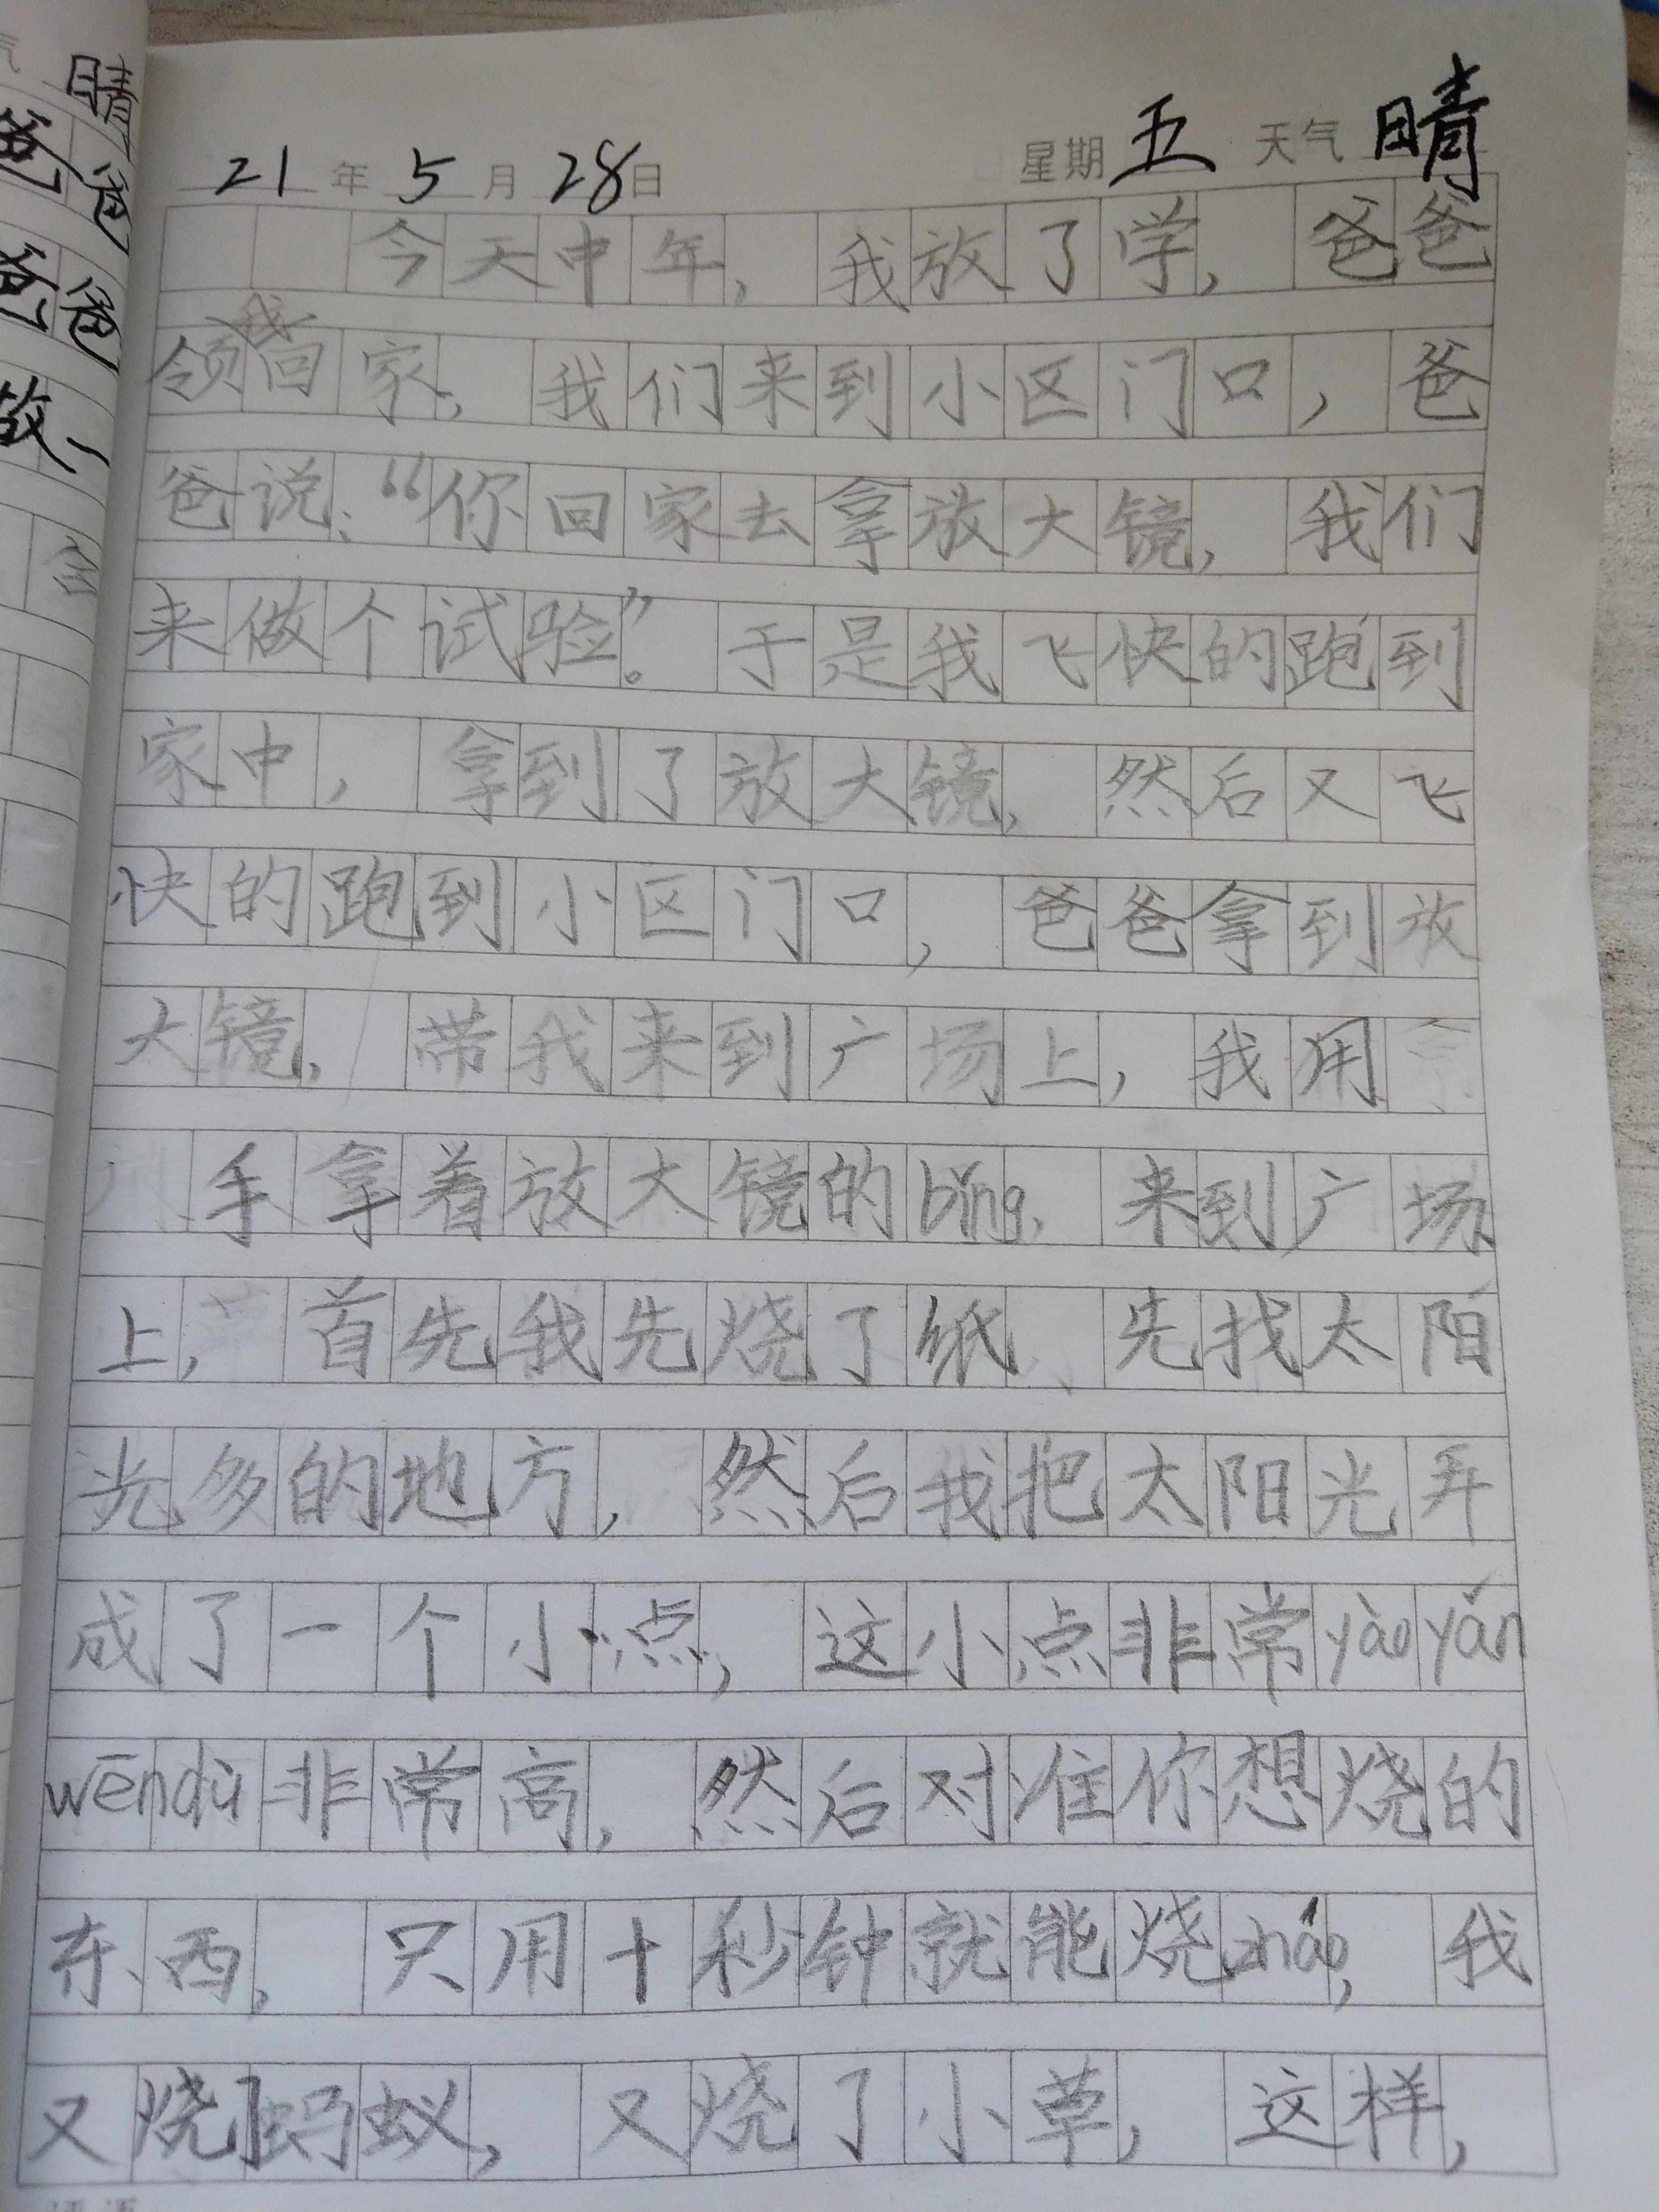 21年5月28日 星期五 天气晴
今天中年，我放了学，爸爸
领我回家，我们来到小区门口，爸
爸说：“你回家去拿放大镜，我们
来做个试验”。于是我飞快的跑到
家中，拿到了放大镜，然后又飞
快的跑到小区门口，爸爸拿到放
大镜，带我来到广场上，我用
手拿着放大镜的bǐng，来到广场
上，首先我先烧了纸，先找太阳
光多的地方，然后我把太阳光弄
成了一个小点，这小点非常yàoyǎn
wēndù非常高，然后对准你想烧的
东西，只用十秒钟就能烧zháo，我
又烧了蚂蚁，又烧了小草，这样，